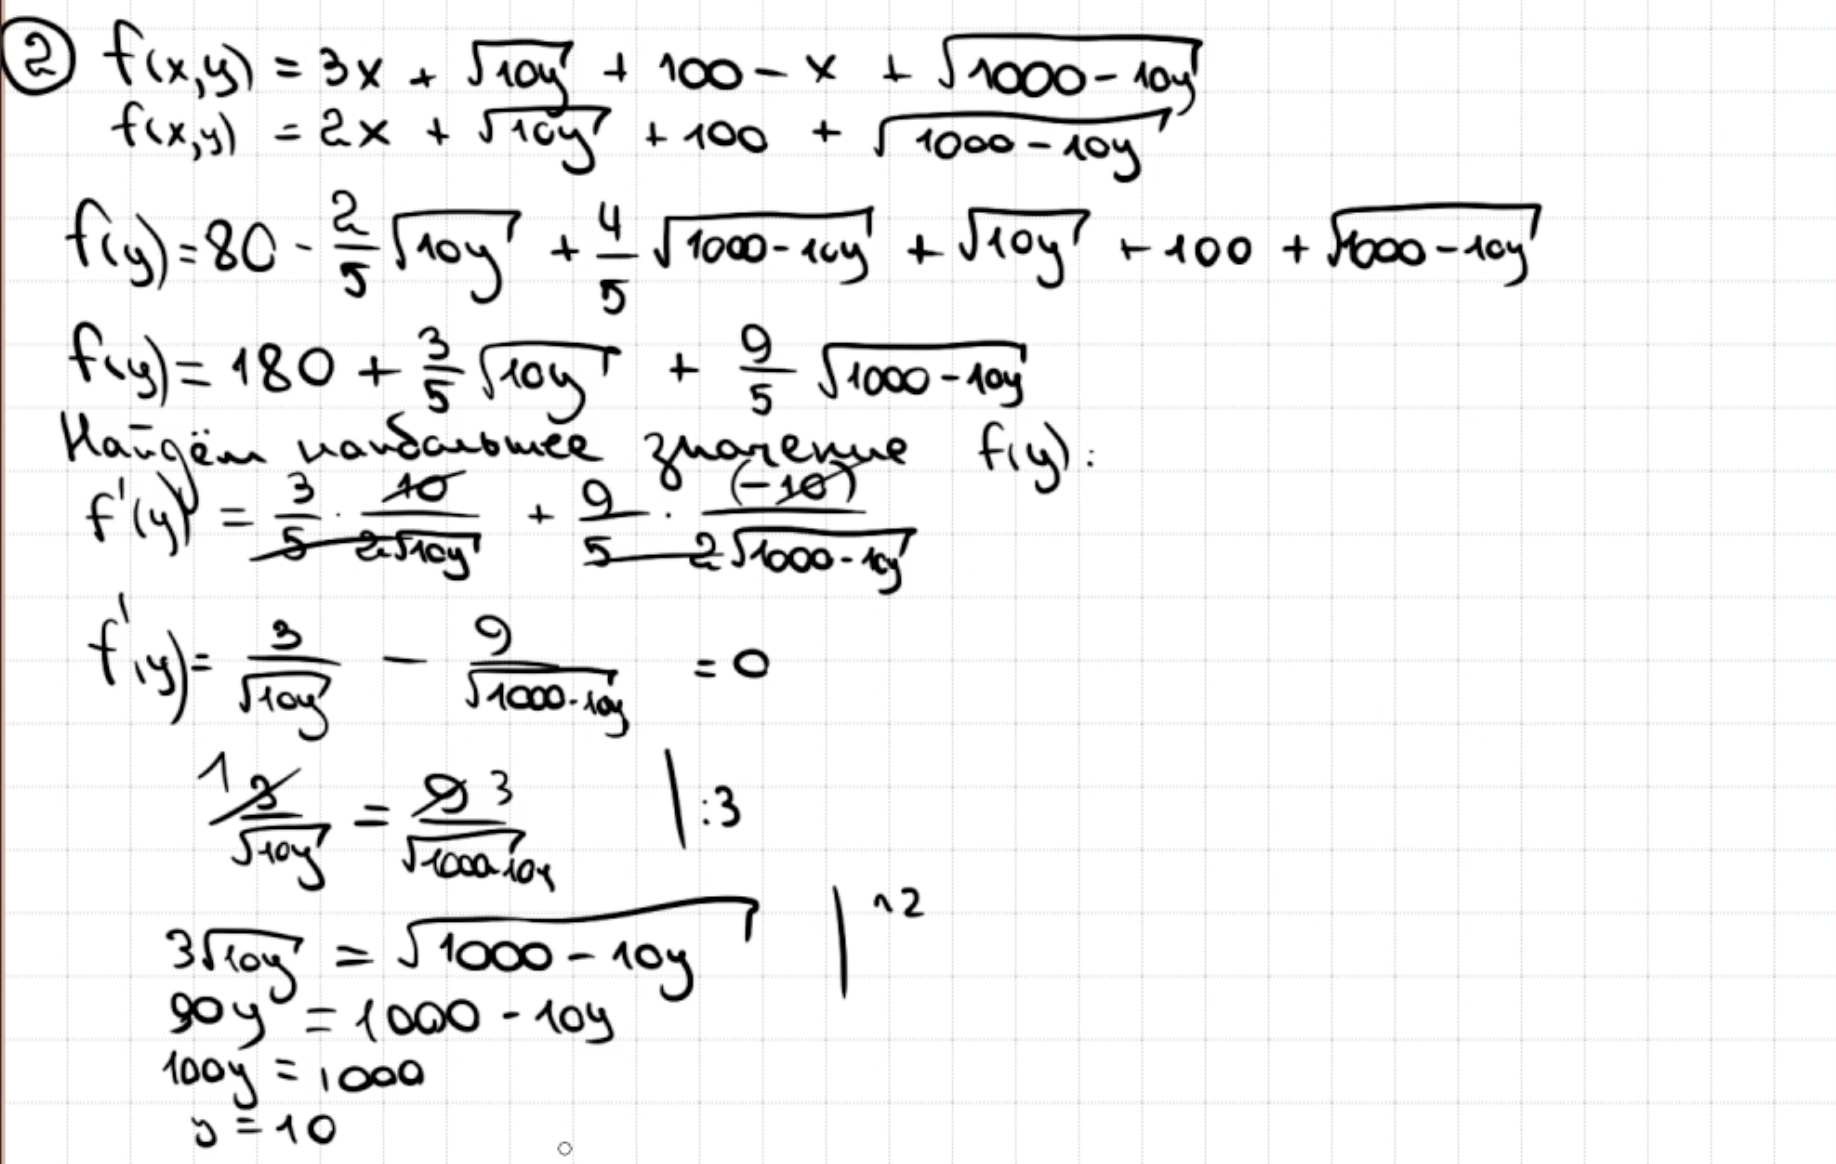 ② f(x,y) = 3x + √(10y) + 100 - x + √(1000 - 10y)
f(x,y) = 2x + √(10y) + 100 + √(1000 - 10y)
f(y) = 80 - 2/5 √(10y) + 4/5 √(1000 - 10y) + √(10y) + 100 + √(1000 - 10y)
f(y) = 180 + 3/5 √(10y) + 9/5 √(1000 - 10y)
Найдём наибольшее значение f(y):
f'(y) = 3/5 · 10/(2√(10y)) + 9/5 · (-10)/(2√(1000 - 10y))
f'(y) = 3/√(10y) - 9/√(1000 - 10y) = 0
1 3/√(10y) = 9 3/√(1000 - 10y) | :3
3√(10y) = √(1000 - 10y) | ^2
90y = 1000 - 10y
100y = 1000
y = 10